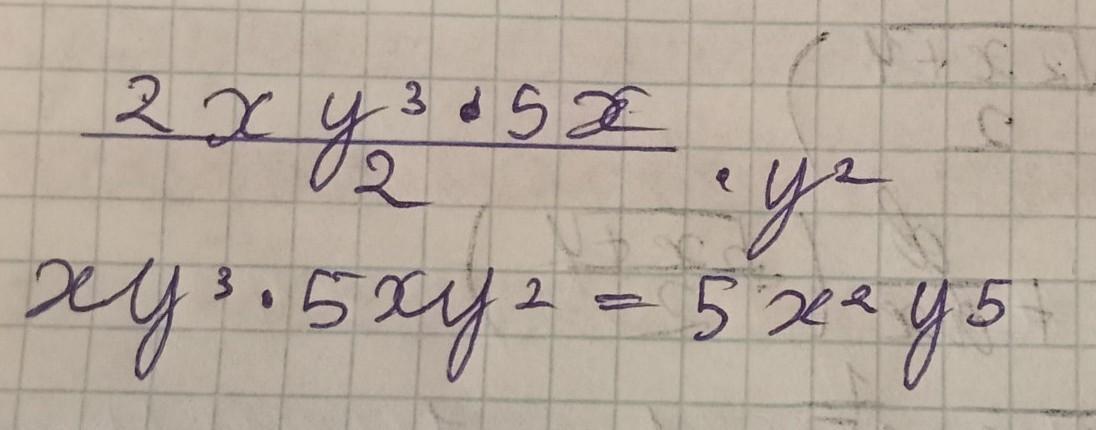 2xy³·5x
2
·y²
xy³·5xy²=5x²y5